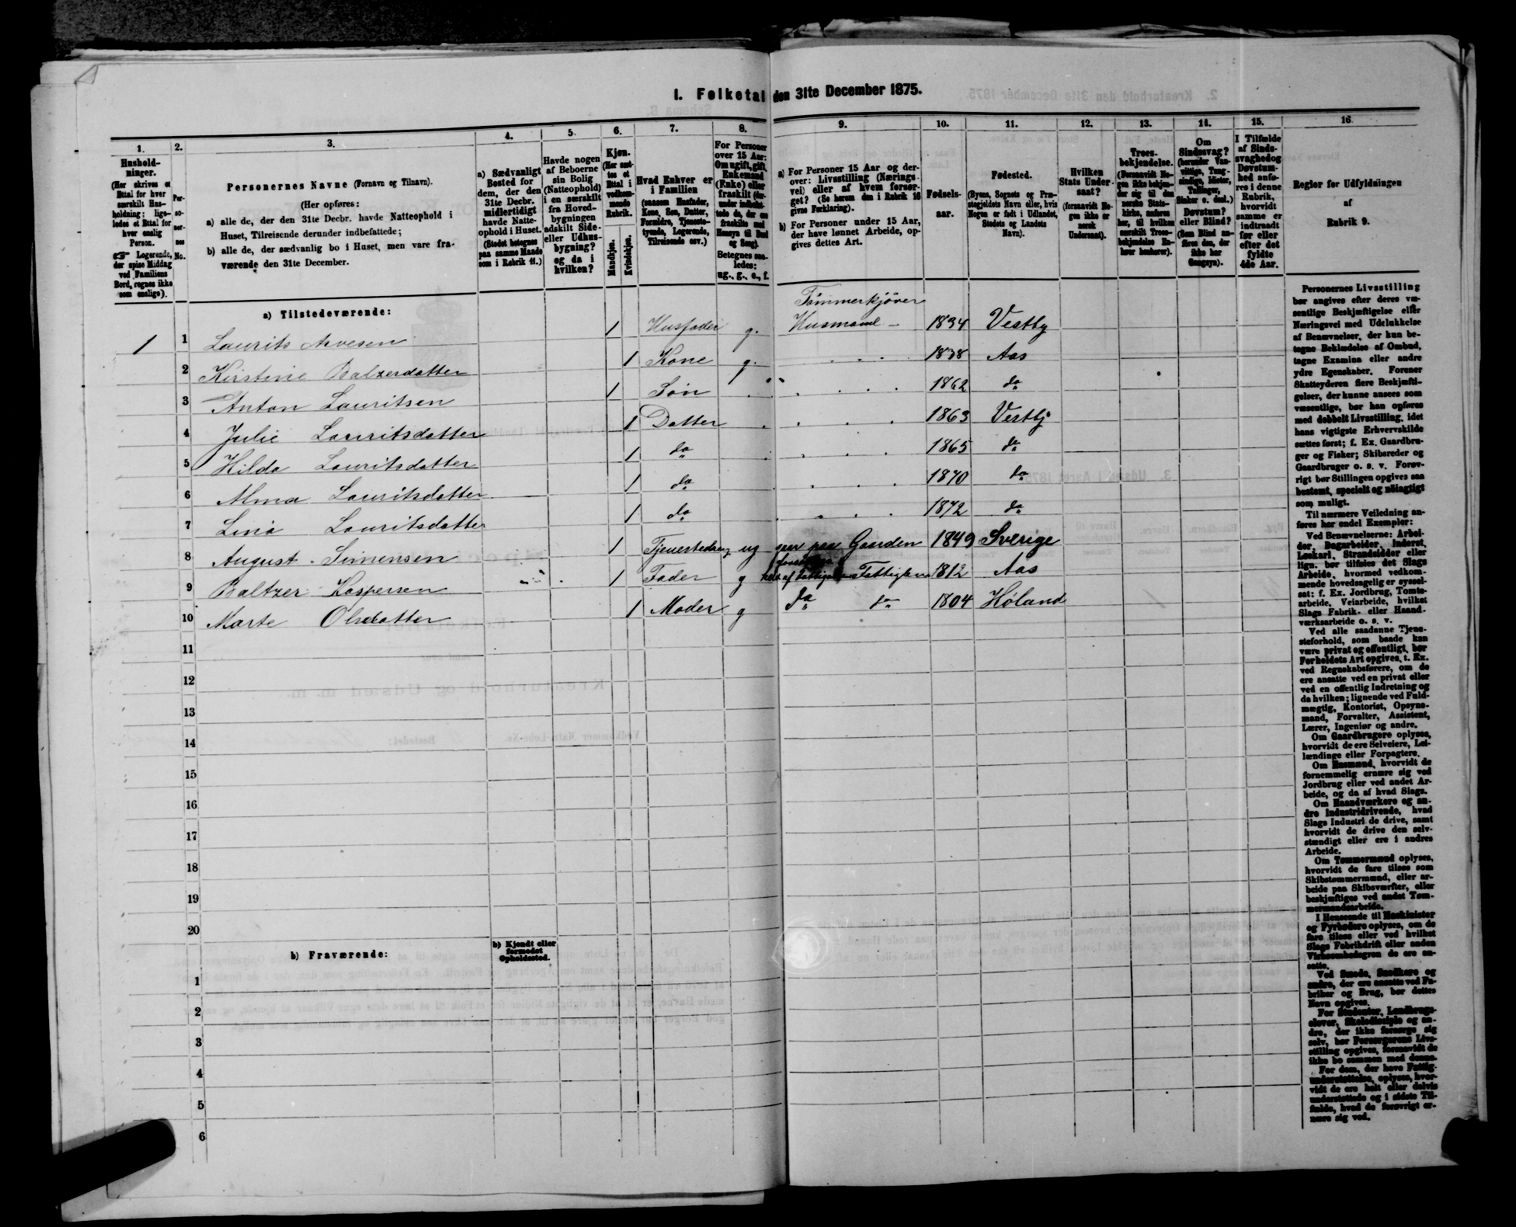 I. Folketal den 31te December 1875.
1. 2. 3. 4. 5. 6. 7. 8. 9. 10. 11. 12. 13. 14. 15. 16.
Hushold-
ninger.
(Her skrives et
Ettal for hver
særskilt Hus-
holdning; lige-
ledes et Ettal for
hver enslig
Person.
Logerende,
der spise Middag
ved Familiens
Bord, regnes ikke
som enslige).
Personernes Navne (Fornavn og Tilnavn).
(Her opføres:
a) alle de, der den 31te Decbr. havde Natteophold i
Huset, Tilreisende derunder indbefattede;
b) alle de, der sædvanlig bo i Huset, men vare fra-
værende den 31te December.
a) Sædvanligt
Bosted for
dem, der den
31te Decbr.
midlertidigt
havde Natte-
ophold i Huset.
(Stedet betegnes
paa samme Maade
som i Rubrik 11.)
Havde nogen
af Beboerne
sin Bolig
(Natteophold)
i en særskilt
fra Hoved-
bygningen
adskilt Side-
eller Udhus-
bygning?
og da i
hvilken?
Kjøn.
(Her sæt-
tes et
Ettal i
vedkom-
mende
Rubrik.
Mandkjøn.
Kvindekjøn.
Hvad Enhver er
i Familien
(saasom Husfader,
Kone, Søn, Datter,
Forældre, Tjeneste-
tyende, Logerende,
Tilreisende osv.)
For Personer
over 15 Aar:
Om ugift, gift,
Enkemand
(Enke) eller
fraskilt
Betegnes saa-
ledes:
ug., g., e., f.
a) For Personer 15 Aar og der-
over: Livsstilling (Nærings-
vei) eller af hvem forsør-
get? (Se herom den i Rubrik 16
givne Forklaring).
b) For Personer under 15 Aar,
der have lønnet Arbeide, op-
gives dettes Art.
Fødsels-
aar.
Fødested.
(Byens, Sognets og Præ-
stegjeldets Navn eller, hvis
Nogen er født i Udlandet,
Stedets og Landets
Navn).
Hvilken
Stats Under-
saat?
(forsaavidt No-
gen ikke er
norsk
Undersaat).
Troes-
bekjendelse.
(Forsaavidt No-
gen ikke bekjen-
der sig til den
norske Stats-
kirke, anføres
her, til hvilken
særskilt Troes-
bekjendelse
Om
Sindssvag?
Døvstum?
eller Blind?
I Tilfælde
af Sinds-
svaghed og
Døvstum-
hed anfø-
res i denne
Rubrik,
hvorvidt
samme er
indtraadt
før eller
efter det
fyldte
4de Aar.
Regler for Udfyldningen
af
Rubrik 9.
a) Tilstedeværende:
Tømmerkjører
1 1 Laurits Arvesen 1 Husfader g. Husmand 1834 Vestby
2 Kirstine Balzerdatter 1 Kone g. 1838 Aas
3 Anton Lauritsen 1 Søn 1862 do
4 Julie Lauritsdatter 1 Datter 1863 Vestby
5 Hilda Lauritsdatter 1 do 1865 do
6 Alma Lauritsdatter 1 do 1870 do
7 Lina Lauritsdatter 1 do 1872 do
8 August Simensen 1 Tjenestedreng ug paa Gaarden 1849 Sverige
9 Baltzer Kaspersen 1 Fader g 1812 Aas
10 Marte Olsdatter 1 Moder g do do 1804 Høland
11
12
13
14
15
16
17
18
19
20
b) Fraværende:
b) Kjendt eller
formodet
Opholdssted.
1
2
3
4
5
6
Personernes Livsstilling
bør angives efter deres væ-
sentlige Beskjæftigelse eller
Næringsvei med Udelukkelse
af Benævnelser, der kun be-
tegne Beklædelse af Ombud,
tagne Examina eller andre
ydre Egenskaber. Forener
Skatteyderen flere Beskjæfti-
gelser, der kunne ansees som
væsentlige, bør han opføres
med dobbelt Livsstilling, idet
hans vigtigste Erhvervskilde
sættes først; f. Ex. Gaardbru-
ger og Fisker; Skibsreder og
Gaardbruger o. s. v. Forøv-
rigt bør Stillingen opgives saa
bestemt, specielt og nøiagtigt
som muligt.
Til nærmere Veiledning an-
føres her endel Exempler:
Ved Benævnelserne: Arbei-
der, Dagarbeider, Inderst,
Løskarl, Strandsidder eller
lign. bør tilføies det Slags
Arbeide, hvormed vedkom-
mende hovedsagelig er syssel-
sat: f. Ex. Jordbrug, Tomte-
arbeide, Veiarbeide, hvilket
Slags Fabrik- eller Haand-
værksarbeide o. s. v.
Ved alle saadanne Tjene-
steforhold, som baade kan
være privat og offentligt, bør
Forholdets Art opgives, t. Ex.
ved Regnskabsførere, om de
ere ansatte ved en privat eller
ved en offentlig Indretning og
da hvilken; lignende ved Fuld-
mægtig, Kontorist, Opsyns-
mand, Forvalter, Assistent,
Lærer, Ingeniør og andre.
Om Gaardbrugere oplyses,
hvorvidt de ere Selveiere, Lei-
lændinge eller Forpagtere.
Om Husmænd, hvorvidt de
fornemmelig ernære sig ved
Jordbrug eller ved andet Ar-
beide, og da af hvad Slags.
Om Haandværkere og an-
dre Industridrivende, hvad
Slags Industri de drive, samt
hvorvidt de drive den selv-
stændigt eller ere i andres
Arbeide.
Om Tømmermænd oplyses,
hvorvidt de fare tilsøs som
Skibstømmermænd, eller ar-
beide paa Skibsværfter, eller
beskjæftiges ved andet Tøm-
mermandsarbeide.
I Henseende til Maskinister
og Fyrbødere oplyses, om de
fare tilsøs eller ved hvilket
Slags Fabrikdrift eller anden
Virksomhedsgren de ere an-
satte.
Ved Smede, Snedkere og
andre, der ere ansatte ved Fa-
briker og Brug, bør dettes
Navn opgives.
For Studenter, Landbrugs-
elever, Skoledisciple og an-
dre, der ikke forsørge sig
selv, bør Forsørgerens Livs-
stilling opgives, forsaavidt de
ikke bo sammen med denne.
For dem, der have Fattig-
understøttelse, oplyses, hvor-
vidt de ere helt eller delvis
understøttede og i sidste Til-
fælde, hvad de forøvrigt er-
nære sig ved.